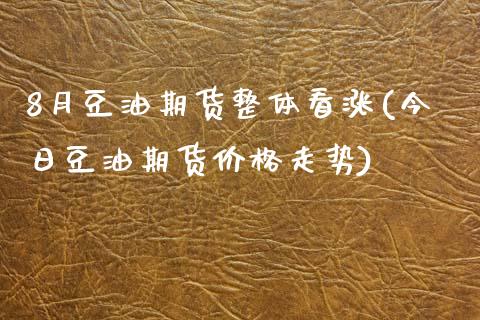 8月豆油期货整体看涨(今
日豆油期货价格走势)